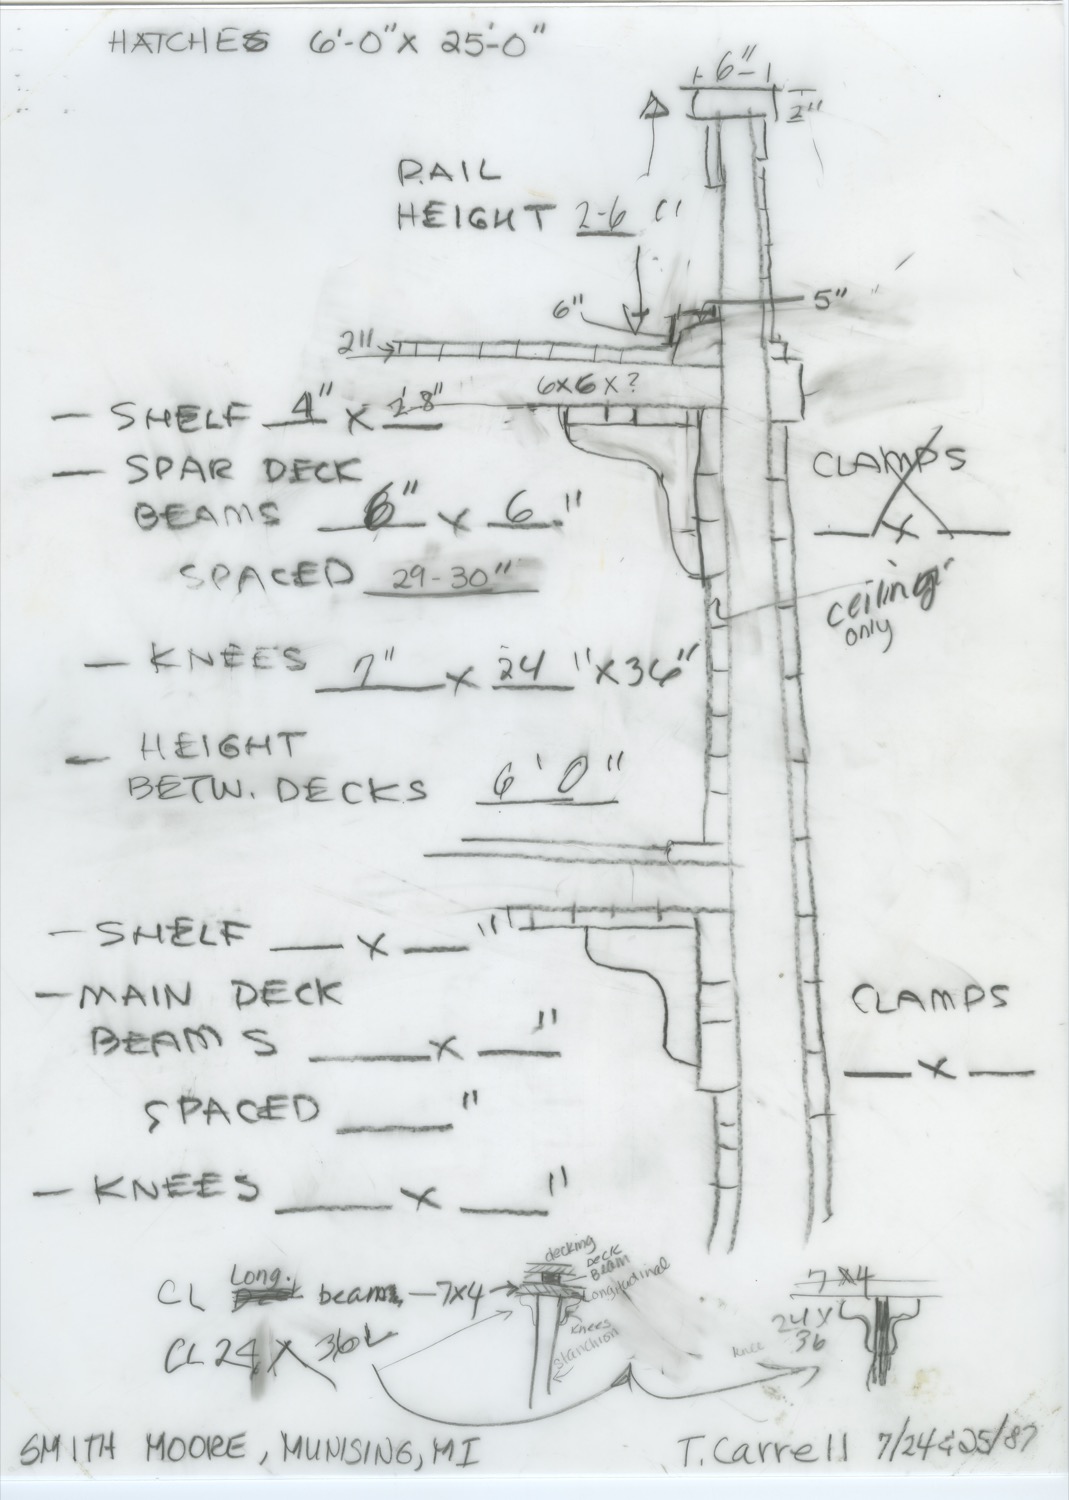 HATCHES 6'-0" X 25'-0"
6"
2"
RAIL
HEIGHT 2-6
6"
5"
2"
6X6 X ?
- SHELF 4" X 1'-8"
- SPAR DECK
BEAMS 6" X 6 "
SPACED 29-30"
CLAMPS
___ X ___
ceiling
only
- KNEES 7" X 24 " X 36"
- HEIGHT
BETW. DECKS 6' 0"
- SHELF ___ X ___ "
- MAIN DECK
BEAMS ___ X ___ "
SPACED ___ "
CLAMPS
___ X ___
- KNEES ___ X ___ "
decking
DECK
BEAM
Longitudinal
CL Long. beam - 7X4
Knees
stanchion
CL 24 X 36
knee
7 X4
24 X
36
SMITH MOORE, MUNISING, MI
T. Carrell 7/24 & 25/87